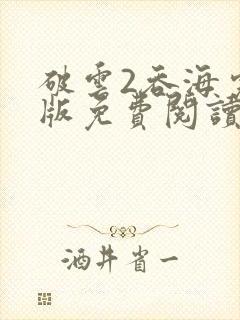 破雲2吞海
版免費閱讀
酒井省一